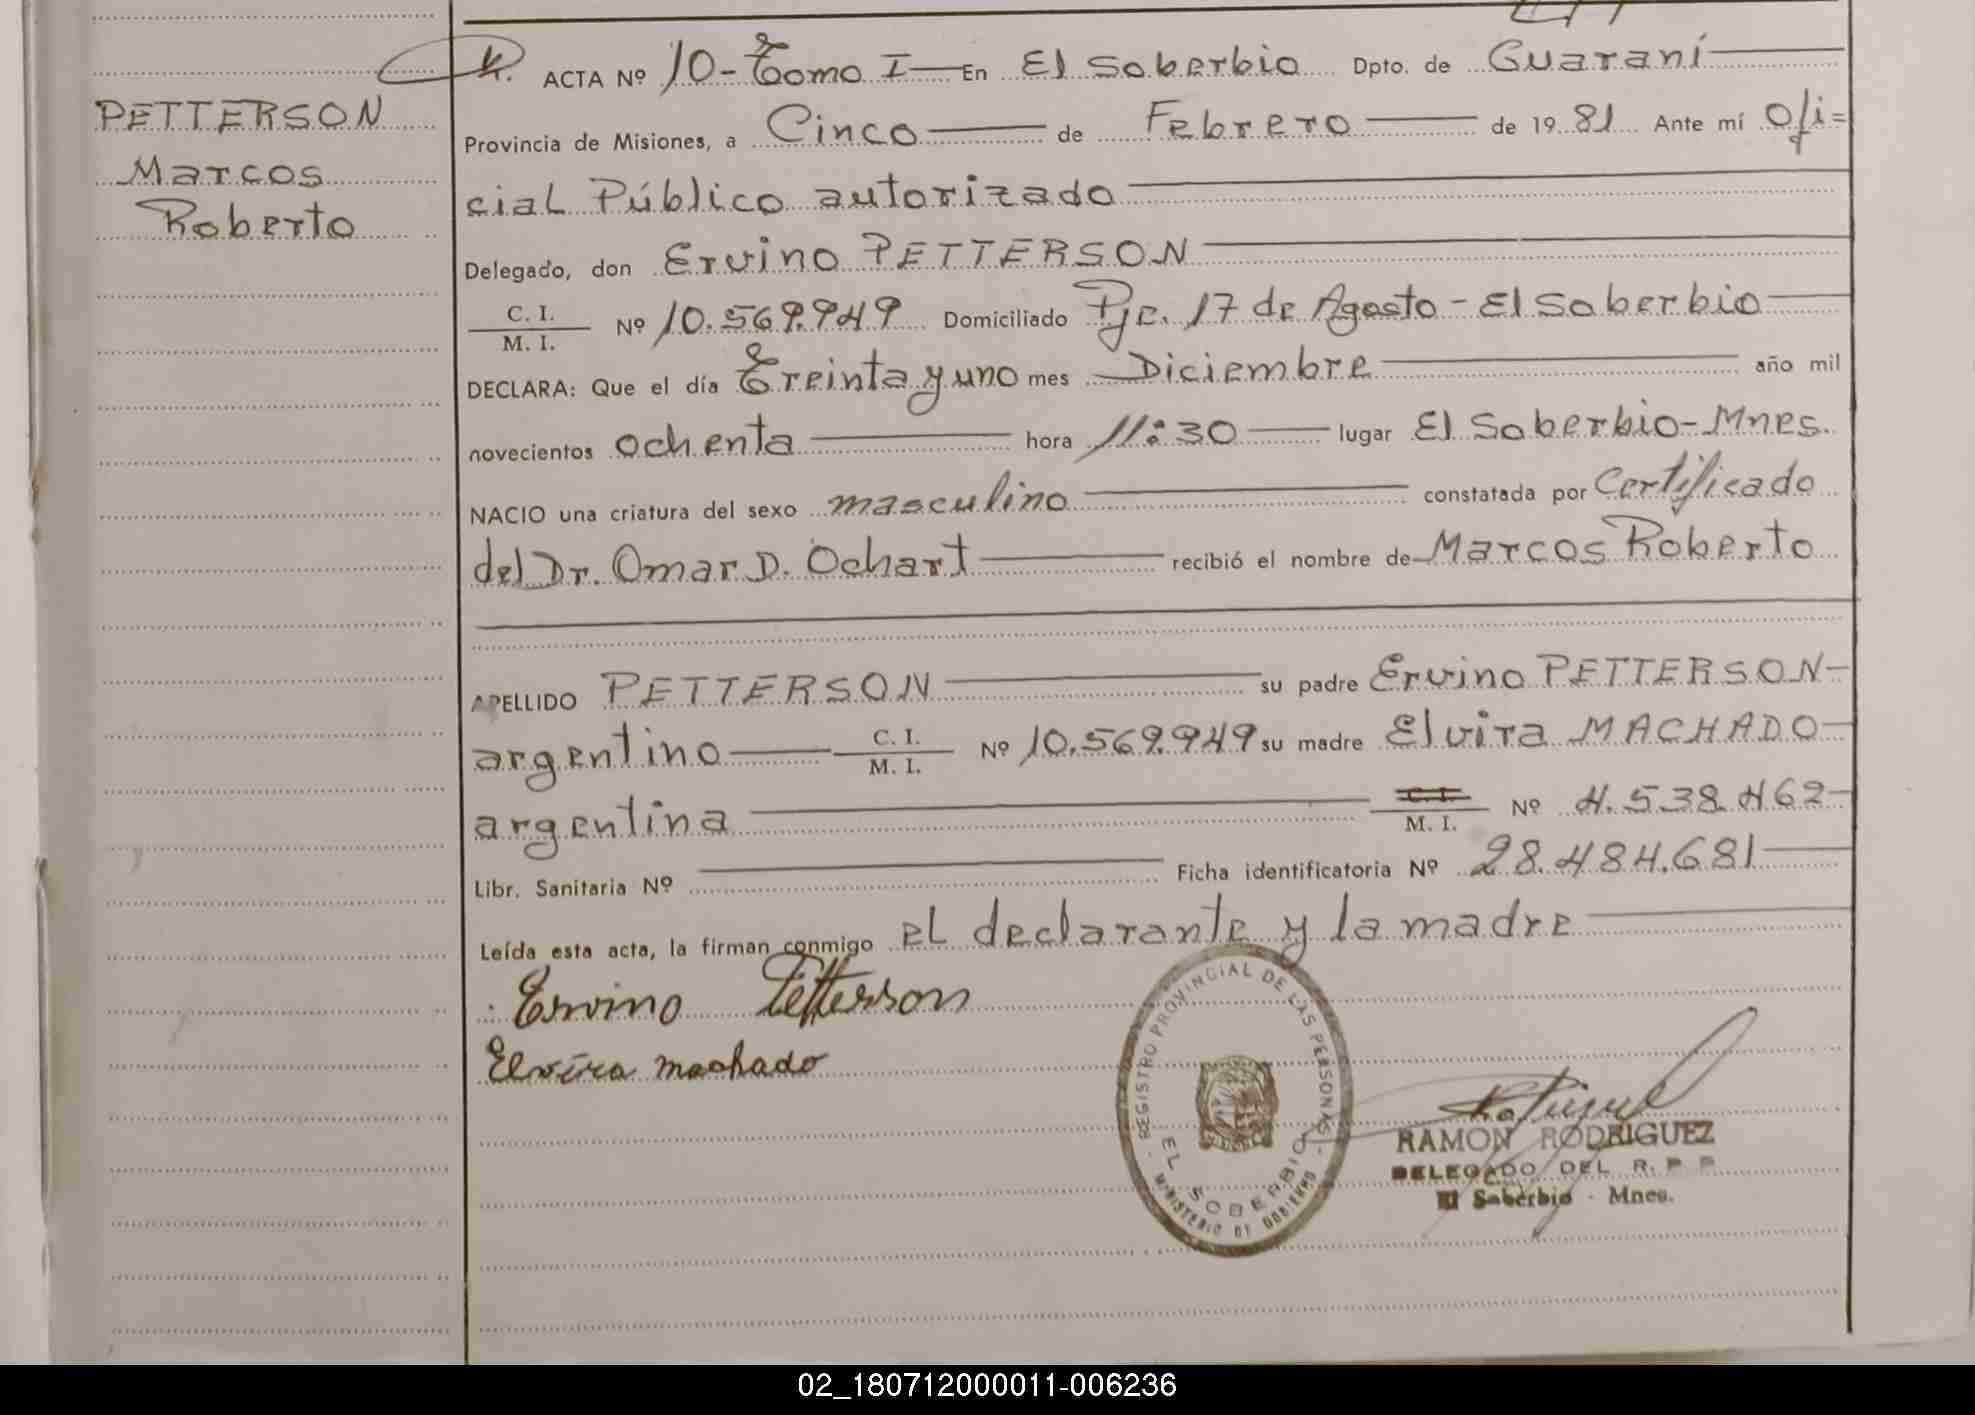 PETTERSON
Marcos
Roberto
ACTA Nº 10 - Tomo I En El Soberbio Dpto. de Guaraní
Provincia de Misiones, a Cinco de Febrero de 1981 Ante mí Ofi=
cial Público autorizado
Delegado, don Ervino PETTERSON
C. I.
M. I. Nº 10.569.949 Domiciliado Pje. 17 de Agosto - El Soberbio
DECLARA: Que el día Treinta y uno mes Diciembre año mil
novecientos ochenta hora 11:30 lugar El Soberbio - Mnes.
NACIO una criatura del sexo masculino constatada por Certificado
del Dr. Omar D. Ochart recibió el nombre de Marcos Roberto
APELLIDO PETTERSON su padre Ervino PETTERSON
argentino C. I.
M. I. Nº 10.569.949 su madre Elvira MACHADO
argentina C. I.
M. I. Nº 4.538.462
Libr. Sanitaria Nº Ficha identificatoria Nº 28.484.681
Leída esta acta, la firman conmigo el declarante y la madre
Ervino Petterson
Elvira machado
REGISTRO PROVINCIAL DE LAS PERSONAS
EL SOBERBIO
MINISTERIO DE GOBIERNO
RAMON RODRIGUEZ
DELEGADO DEL R. P. P.
El Soberbio - Mnes.
02_180712000011-006236